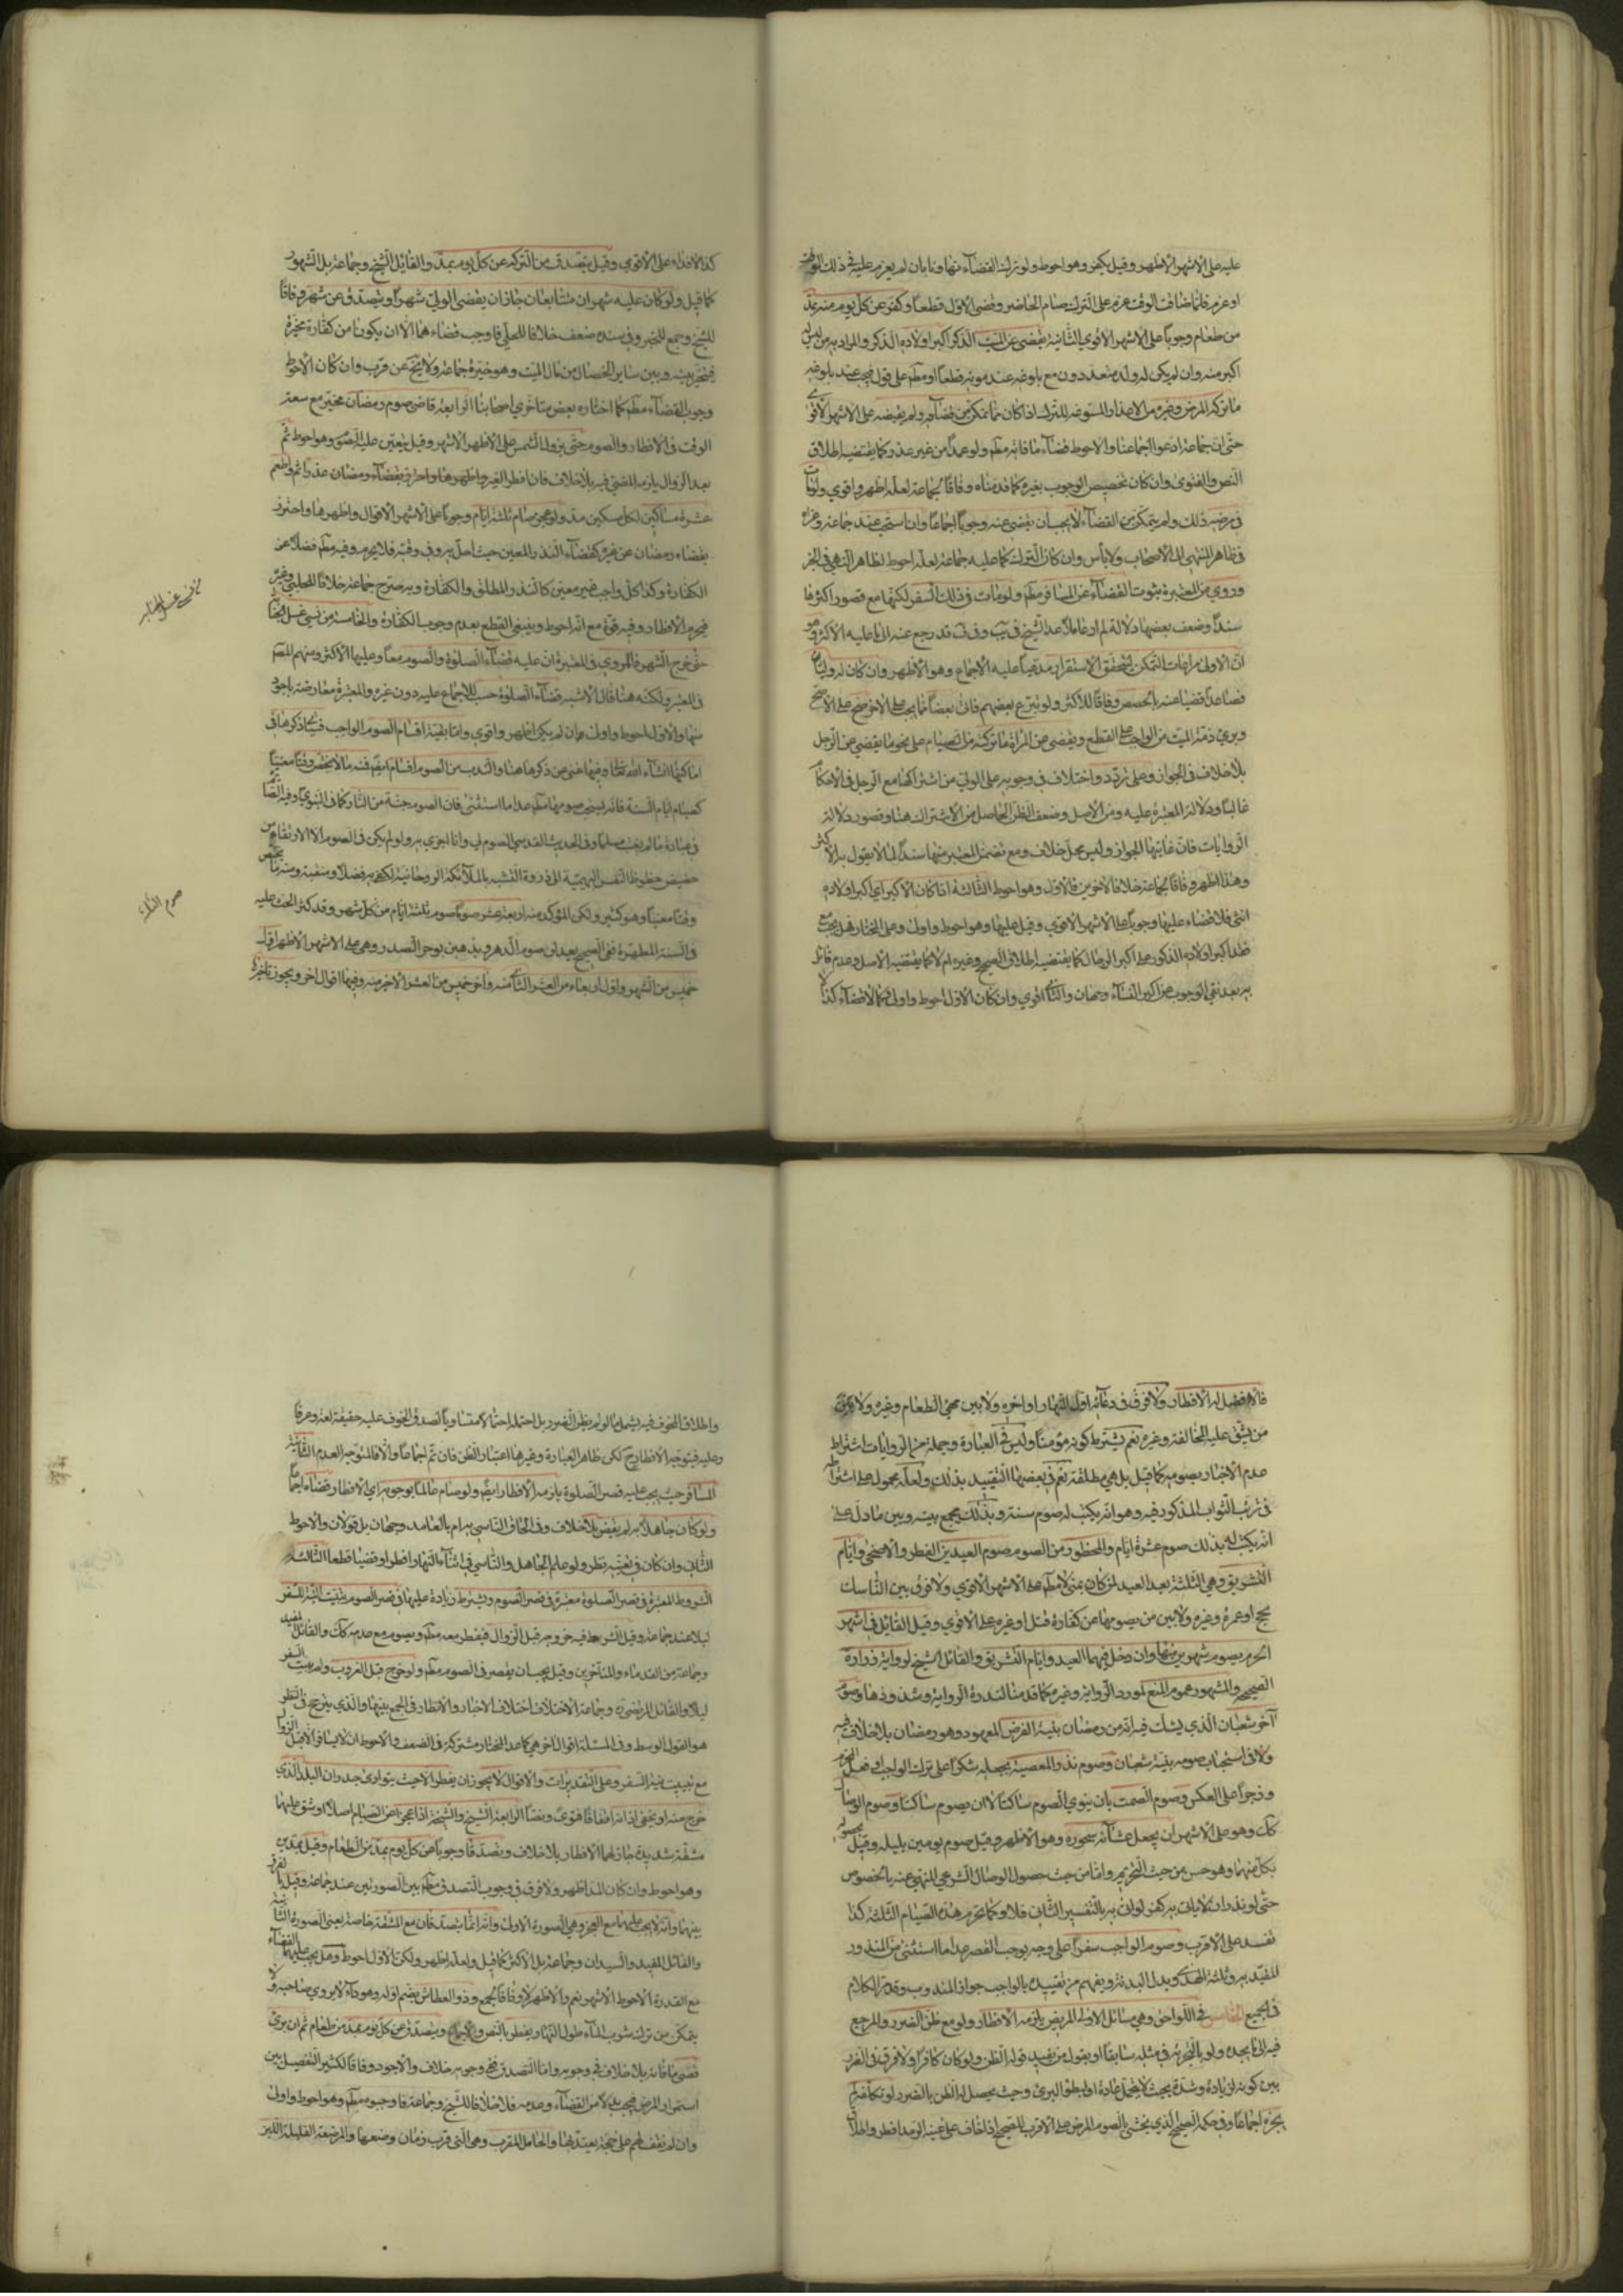 عليه على الاشهر الاظهر وقيل يكفر وهو احوط ولو ترك القضاء تهاونا بان لم يعزم عليه في ذلك الوقت
او عزم فلما ضاق الوقت عزم على الترك صام الحاضر وقضى الاول قطعا وكفر عن كل يوم منه بمد
من طعام وجوبا على الاشهر الاقوى الثانية يقضى عن الميت الذكر اكبر اولاده الذكور والمراد به من ليس له
اكبر منه وان لم يكن له ولد متعددون مع بلوغه عند موته قطعا او مط على قول فيجب عند بلوغه
ما تركه لمرض وغيره من الاعذار المسوغة للترك اذا كان مما تمكن من قضائه ولم يقضه على الاشهر الاقوى
حتى ان جماعة ادعوا اجماعنا والاحوط قضاء ما فاته مط ولو عمدا من غير عذر كما يقتضيه اطلاق
النص والفتوى وان كان تخصيص الوجوب بغيره كما قدمناه وفاقا لجماعة لعله اظهر واقوى ولو مات
في مرضه ذلك ولم يتمكن من القضاء لا يجب ان يقضى عنه وجوبا اجماعا وان استحب عند جماعة وعزاه
في ظاهر المنتهى الى الاصحاب ولا بأس وان كان الترك كما عليه جماعة لعله احوط لظاهر النهى في الخبر
وروي في المعتبرة ثبوت القضاء عن المسافر مط ولو مات في ذلك السفر لكنها مع قصور اكثرها
سندا وضعف بعضها دلالة لم ار عاملا عدا الشيخ في يب وفي ف قد رجع عنه الى ما عليه الاكثر وهو
ان الاولى مراعات التمكن ليتحقق الاستقرار مدعيا عليه الاجماع وهو الاظهر وان كان له وليان
فصاعدا قضيا عنه بالحصص وفاقا للاكثر ولو تبرع بعضهم فات بعضا مما يجب على الاخر صح على الاصح
وبرئ ذمة الميت من الواجب على القطع ويقضى عن المرأة ما تركته من الصيام على نحو ما يقضى عن الرجل
بلا خلاف في الجواز وعلى تردد واختلاف في وجوبه على الولي من اشتراكها مع الرجل في الاحكام
غالبا ودلالة المعتبرة عليه ومن الاصل وضعف الظن الحاصل من الاشتراك هنا وقصور دلالة
الروايات فان غايتها الجواز وليس محل خلاف ومع تضمن المعتبر منها سندا لما لا يقول به الاكثر
وهذا اظهر وفاقا لجماعة خلافا لاخرين فالاول وهو احوط الثالثة اذا كان الاكبر اي اكبر اولاده
انثى فلا قضاء عليها وجوبا على الاشهر الاقوى وقيل عليها وهو احوط واولى وعلى المختار فهل يجب مع
فقد اكبر اولاده الذكور على اكبر الرجال كما يقتضيه اطلاق الصحيح وغيره ام لا كما يقتضيه الاصل وعدم قائل
به بعد نفي الوجوب عن اكبر النساء وجهان والثاني اقوى وان كان الاول احوط واولى وكما لا قضاء كذا
كذا لا فداء على الاقوى وقيل يتصدق من التركة عن كل يوم بمد والقائل الشيخ وجماعة بل المشهور
كما قيل ولو كان عليه شهران متتابعان جاز ان يقضى الولي شهرا ويتصدق عن شهر وفاقا
للشيخ وجمع للخبر وفي سنده ضعف خلافا للحلي فاوجب قضاءهما الا ان يكونا من كفارة مخيرة
فيتخير بينه وبين ساير الخصال من مال الميت وهو خيرة جماعة ولا يخ عن قرب وان كان الاحوط
وجوب القضاء مط كما اختاره بعض متاخري اصحابنا الرابعة قاضي صوم رمضان مخير مع سعة
الوقت في الافطار والصوم حتى يزول الشمس على الاظهر الاشهر وقيل يتعين عليه الصوم وهو احوط ثم
بعد الزوال يلزمه المضي فيه بلا خلاف فان افطر لغير واظهرها واحرى بقضاء رمضان عذر اثم واطعم
عشرة مساكين لكل مسكين مد ولو عجز صام ثلثة ايام وجوبا على الاشهر الاقوال واظهرها واحترز
بقضاء رمضان عن غيره كقضاء النذر المعين حيث اخل به في وقته فلا يحرم وفيه مط فضلا عن
الكفارة وكذا كل واجب غير معين كالنذر المطلق والكفارة وبه صرح جماعة خلافا للحلبي وغيره
فيحرم الافطار وفيه قوة مع انه احوط وينبغي القطع بعدم وجوب الكفارة والخامسة من نسي غسل الجنابة
حتى خرج الشهر فالمروي في المعتبرة ان عليه قضاء الصلوة والصوم معا وعليها الاكثر ومنهم المص
في المعتبر ولكنه هنا قال الاشبه قضاء الصلوة حسب للاجماع عليه دون غيره والمعتبرة معارضة باجود
منها والاول احوط واولى وان لم يكن اظهر واقوى واما بقية اقسام الصوم الواجب فسيجئ ذكرها في
اماكنها انشاء الله تعالى وفيها غنى عن ذكرها هنا والندب من الصوم اقسام ايضا فمنه ما لا يختص وقتا معينا
كصيام ايام السنة فانه يستحب صومها مط عدا ما استثنى فان الصوم جنة من النار كما في النبوي وفيه الصائم
في عبادة ما لم يغتب مسلما وفي الحديث القدسي الصوم لي وانا اجزي به ولو لم يكن في الصوم الا الارتقاء من
حضيض حظوظ النفس البهيمية الى ذروة التشبه بالملائكة الروحانية لكفى به فضلا ومنقبة ومنه ما يختص
وقتا معينا وهو كثير ولكن المؤكد منه اربعة عشر صوما صوم ثلثة ايام من كل شهر وقد كثر الحث عليه
في السنة المطهرة ففي الصحيح يعدلن صوم الدهر ويذهبن بوحر الصدر وهي على الاشهر الاظهر اول
خميس من الشهر واول اربعاء من العشر الثاني منه واخر خميس من العشر الاخر منه وفيها اقوال اخر ويجوز تاخيرها
من نسي غسل الجنابة
صوم الثلاثة
فالافضل له الافطار ولا فرق في دعائه اول النهار او اخره ولا بين مهيئ الطعام وغيره ولا بين
من يشق عليه المخالفة وغيره نعم يشترط كونه مؤمنا وليس في العبارة وجملة من الروايات اشتراط
عدم الاخبار بصومه كما قيل بل هي مطلقة نعم في بعضها التقييد بذلك ولعله محمول على اشتراطه
في ترتب الثواب المذكور فيه وهو انه يكتب له صوم سنة وبذلك يجمع بينه وبين ما دل على
انه يكتب له بذلك صوم عشرة ايام والمحظور من الصوم صوم العيدين الفطر والاضحى وايام
التشريق وهي الثلثة بعد العيد لمن كان بمنى لا مط على الاشهر الاقوى ولا فرق بين الناسك
بحج او عمرة وغيره ولا بين من يصومها عن كفارة قتل او غيره على الاقوى وقيل القاتل في اشهر
الحرم يصوم شهرين منها وان دخل فيهما العيد وايام التشريق والقائل الشيخ لرواية زرارة
الصحيحة والمشهور عموم المنع لمورد الرواية وغيره كما قدمنا لندرة الرواية وشذوذها وصوم
آخر شعبان الذي يشك فيه انه من رمضان بنية الفرض المعهود وهو رمضان بلا خلاف فيه
ولا في استحباب صومه بنية شعبان وصوم نذر المعصية بجعله شكرا على ترك الواجب او فعل الحرام
وزجرا على العكس وصوم الصمت بان ينوي الصوم ساكتا لا ان يصوم ساكتا وصوم الوصال
كك وهو على الاشهر ان يجعل عشائه سحوره وهو الاظهر وقيل صوم يومين بليلة وقيل بحصوله
بكل منهما وهو حسن من حيث التحريم واما من حيث حصول الوصال الشرعي المنهي عنه بالخصوص
حتى لو نذر ان لا ياتي به كفى لو اتى به بالتفسير الثاني فلا وكما يحرم هذه الصيام الثلثة كذا
تفسد على الاقرب وصوم الواجب سفرا على وجه يوجب القصر عدا ما استثنى من المنذور
المقيد به وثلثة الهدي وبدل البدنة ويفهم من تقييده بالواجب جواز المندوب وقد مر الكلام
في الجميع الخامس في اللواحق وهي مسائل الاولى المريض يلزمه الافطار ولو مع ظن الضرر والمرجع
فيه الى ما يجده ولو بالتجربة في مثله سابقا او بقول من يفيد قوله الظن ولو كان كافرا ولا فرق في الضرر
بين كونه لزيادة وشدة بحيث لا يتحمل عادة او لبطؤ البرئ وحيث يحصل له الظن بالضرر لو تكلفه لم
يجزه اجماعا وفي حكمه الصحيح الذي يخشى بالصوم المرض على الاقرب للصحيح اذا خاف على عينه الرمد افطر واطلاق
واطلاق الخوف فيه يشمل ما لو لم يظن الضرر بل احتمله احتمالا متساويا لصدق الخوف عليه حقيقة لغة وعرفا
وعليه فيتوجه الافطار ح لكن ظاهر العبارة وغيرها اعتبار الظن فان تم اجماعا والا فالمتوجه العدم الثانية
المسافر حيث يجب عليه قصر الصلوة يلزمه الافطار ايضا ولو صام عالما بوجوبه اي الافطار قضاه اجماعا
ولو كان جاهلا به لم يقض بلا خلاف وفي الحاق الناسي به ام بالعامد وجهان بل قولان والاحوط
الثاني وان كان في تعينه نظر ولو علم الجاهل والناسي في اثناء النهار افطرا وقضيا قطعا الثالثة
الشروط المعتبرة في قصر الصلوة معتبرة في قصر الصوم ويشترط زيادة عليها في قصر الصوم تبييت النية للسفر
ليلا عند جماعة وقيل الشرط فيه خروجه قبل الزوال فيفطر معه مط ويصوم مع عدمه كك والقائل المفيد
وجماعة من القدماء والمتأخرين وقيل يجب ان يقصر في الصوم مط ولو خرج قبل الغروب ولم يبيت السفر
ليلا والقائل المرتضى ره وجماعة الاختلاف اختلاف الاخبار والانظار في الجمع بينها والذي يترجح في النظر
هو القول الوسط وفي المسئلة اقوال اخر هي كما عدا المختار مشتركة في الضعف والاحوط ان لا يسافر الا قبل الزوال
مع تبييت نية السفر وعلى التقديرات والاقوال لا يجوز ان يفطر الا حيث يتوارى جدران البلد الذي
خرج منه او يخفى اذانه اتفاقا فتوى ونصا الرابعة الشيخ والشيخة اذا عجزا عن الصيام اصلا او شق عليهما
مشقة شديدة جاز لهما الافطار بلا خلاف وتصدقا وجوبا عن كل يوم بمد من الطعام وقيل بمدين
وهو احوط وان كان المد اظهر ولا فرق في وجوب التصدق مط بين الصورتين عند جماعة وقيل بالفرق
بينهما وانه لا يجب عليهما مع العجز وهي الصورة الاولى وانه انما يتصدقان مع المشقة خاصة يعنى الصورة الثانية
والقائل المفيد والسيدان وجماعة بل الاكثر كما قيل ولعله اظهر ولكن الاول احوط وهل يجب عليهما القضاء
مع القدرة الاحوط الاشهر نعم والاظهر لا وفاقا لجمع وذو العطاش بضم اوله وهو داء لا يروي صاحبه ولا
يتمكن من ترك شرب الماء طول النهار يفطر بالنص والاجماع ويتصدق عن كل يوم بمد من طعام ثم ان برئ
قضى ما فاته بلا خلاف في وجوبه واما التصدق ففي وجوبه خلاف والاجود وفاقا لكثير التفصيل بين
استمرار المرض فيجب بدلا من القضاء وعدمه فلا خلافا للشيخ وجماعة فاوجبوه مط وهو احوط واولى
وان لم نقف لهم على حجة يعتد بها والحامل المقرب وهي التي قرب زمان وضعها والمرضعة القليلة اللبن